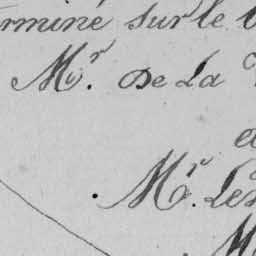 rminé sur le
Mr. De La
Mr. Les